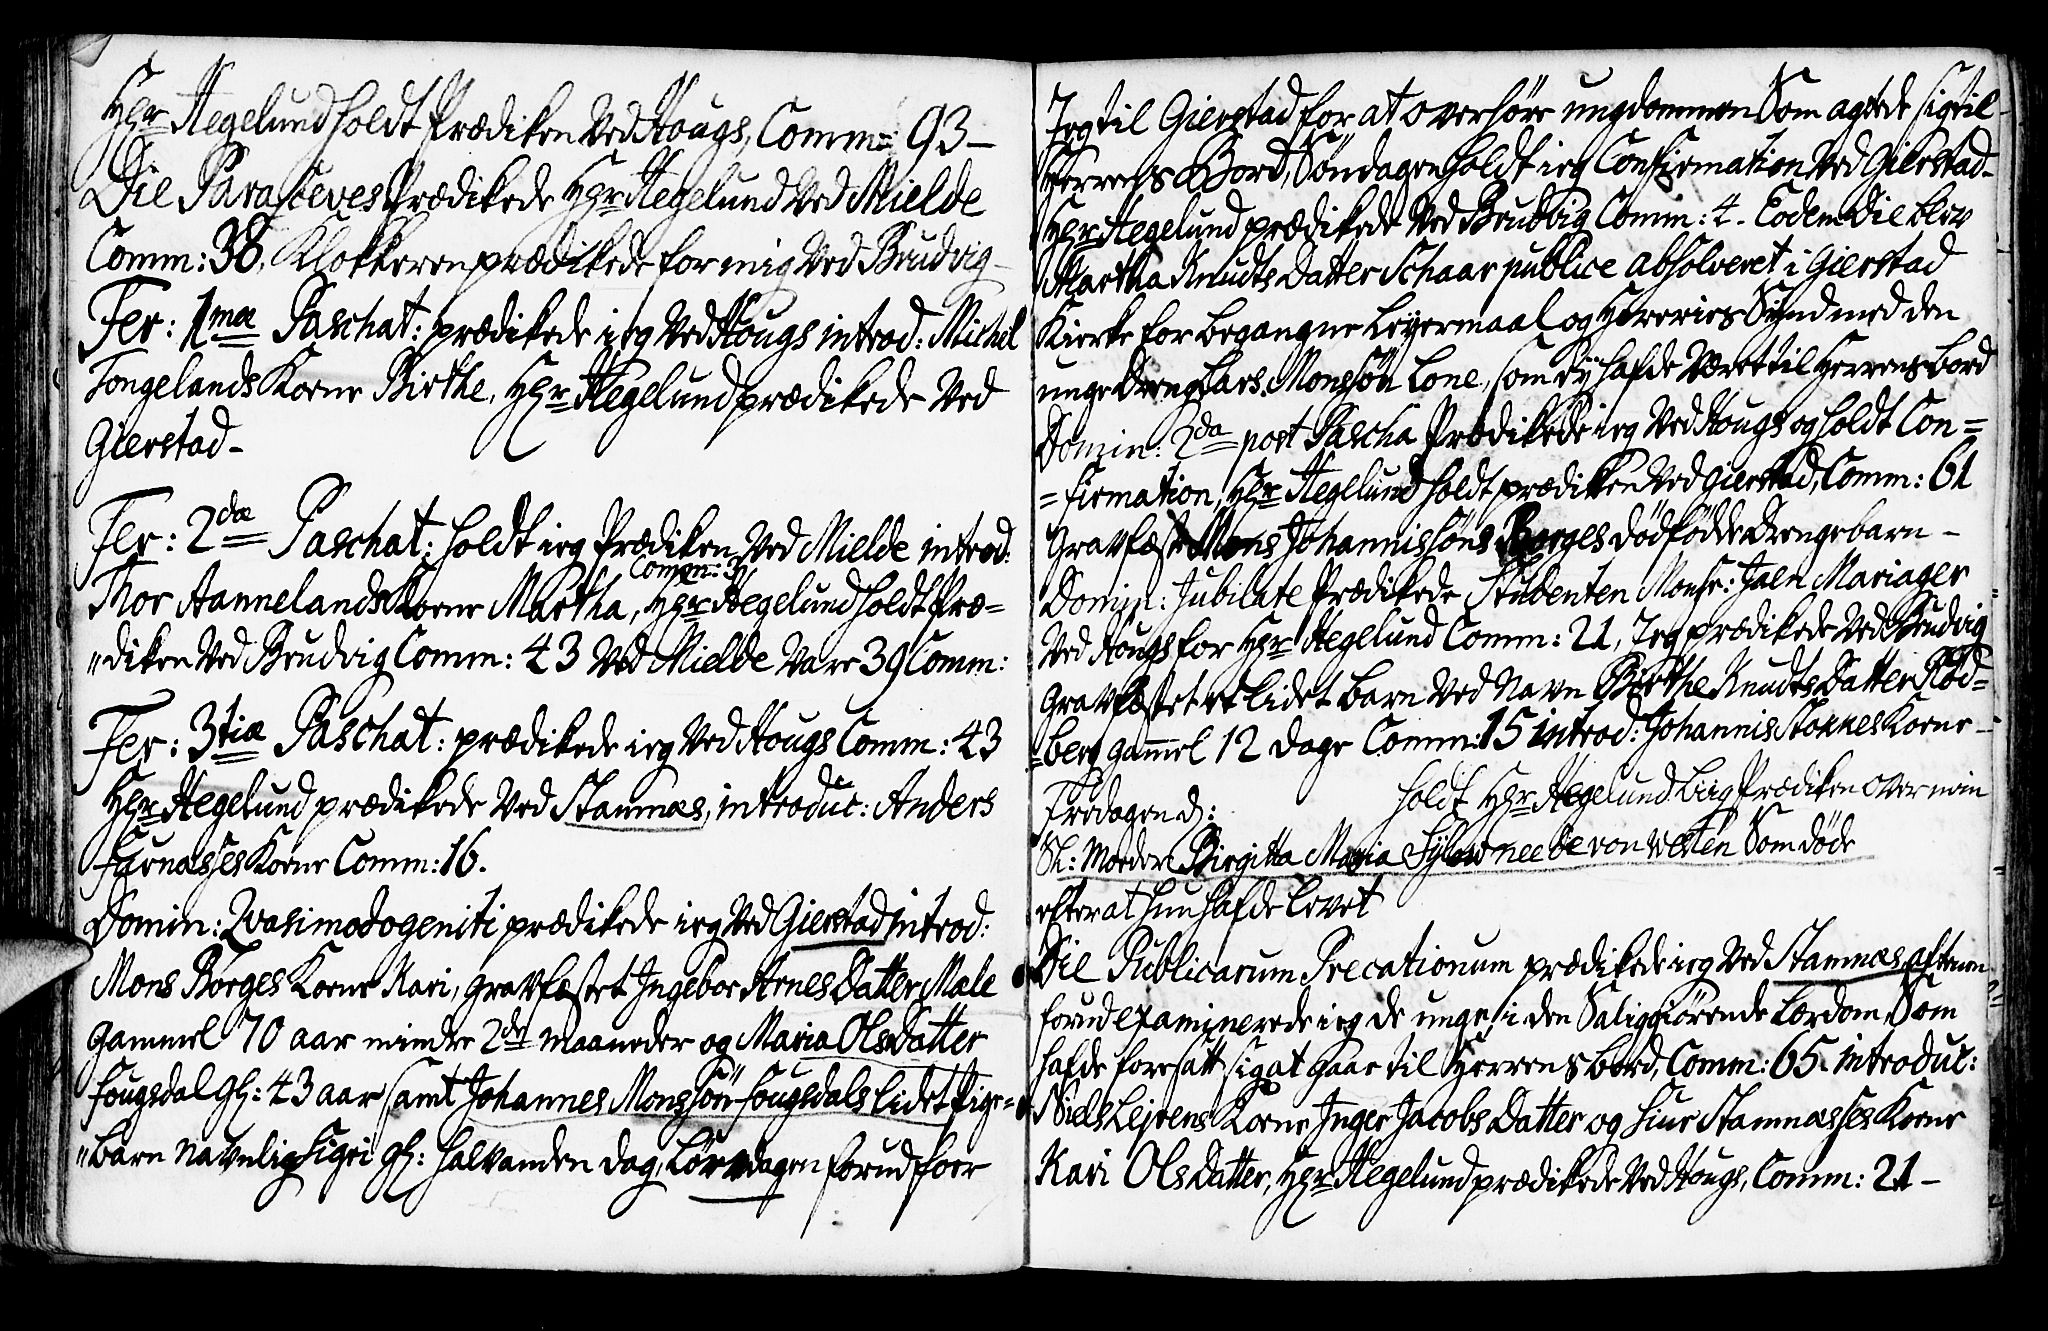 Hr Hegelund holdt Prædiken Ved Hougs, Comm: 93 –
Die Parasceves Prædikede Hr Hegelund Ved Mielde
Comm: 38, Klokkeren prædikede for mig Ved Brudvig –
Fer: 1mæ Paschat: prædikede ieg Ved Hougs introd: Michel
Tongelands Kone Birthe, Hr Hegelund prædikede Ved
Gierstad –
Fer: 2dæ Paschat: holdt ieg Prædiken Ved Mielde introd:
Comm: 3
Thor Aannelands Kone Martha, Hr Hegelund holdt Præ=
"diken Ved Brudvig Comm: 43 Ved Mielde Vare 39 Comm:
Fer: 3tiæ Paschat: prædikede ieg Ved Hougs Comm: 43
Hr Hegelund prædikede Ved Stamnæs, introduc: Anders
Furnæsses Kone Comm: 16.
Domin: Qvasimodogeniti prædikede ieg Ved Gierstad introd:
Mons Borges Kone Kari, gravfæstet Ingebor Arnes Datter Male
gammel 70 aar mindre 2de maaneder og Maria Ols Datter
Fougsdal gl: 43 aar samt Johannes Monssøn Fougsdals lidet Pige=
"barn Navnlig Sigri gl: halvanden dag, Løverdagen forud foer
Jeg til Gierstad for at overhøre ungdommen Som agtede sig til
Herrens Bord, Søndagen holdt ieg Confirmation Ved Gierstad –
Hr Hegelund prædikede Ved Brudvig Comm: 4. Eodem Die blev
Martha Knudts Datter Schaar publice absolveret i Gierstad
Kierke for begangne Leyermaal og Horeries Synd med den
unge Dreng Lars Monssøn Lone, som ey hafde Været til Herrens bord
Domin: 2da post Pascha Prædikede ieg Ved Hougs og holdt Con=
= firmation, Hr Hegelund holdt prædiken Ved Gierstad, Comm: 61
Gravfæste Mons Johannissøns Borges dødfødde Drengebarn –
Domin: Jubilate Prædikede Studenten Monsr: Jaen Mariager
Ved Hougs for Hr Hegelund Comm: 21, Jeg prædikede Ved Brudvig
gravfæstet et lidet barn Ved Navn Birthe Knudts Datter Rød=
=berg gammel 12 dage Comm: 15 introd: Johannis Stoknes Kone –
Fredagen d: holdt Hr Hegelund Liig Prædiken over min
Sl: Moder Birgitta Maria Sylow nee de von Westen Som døde
efter at hun hafde levet
Die Publicarum Precationum prædikede ieg Ved Stamnæs, aftenen
forud examinerede ieg de unge, i den Saliggiørende Lærdom, Som
hafde foresatt sig at gaae til Herrens bord, Comm: 65. introduc:
Niels Lejrens Kone Inger Jacobs Datter og Siur Stamnæsses Kone
Kari Ols Datter, Hr Hegelund prædikede Ved Hougs, Comm: 21 –